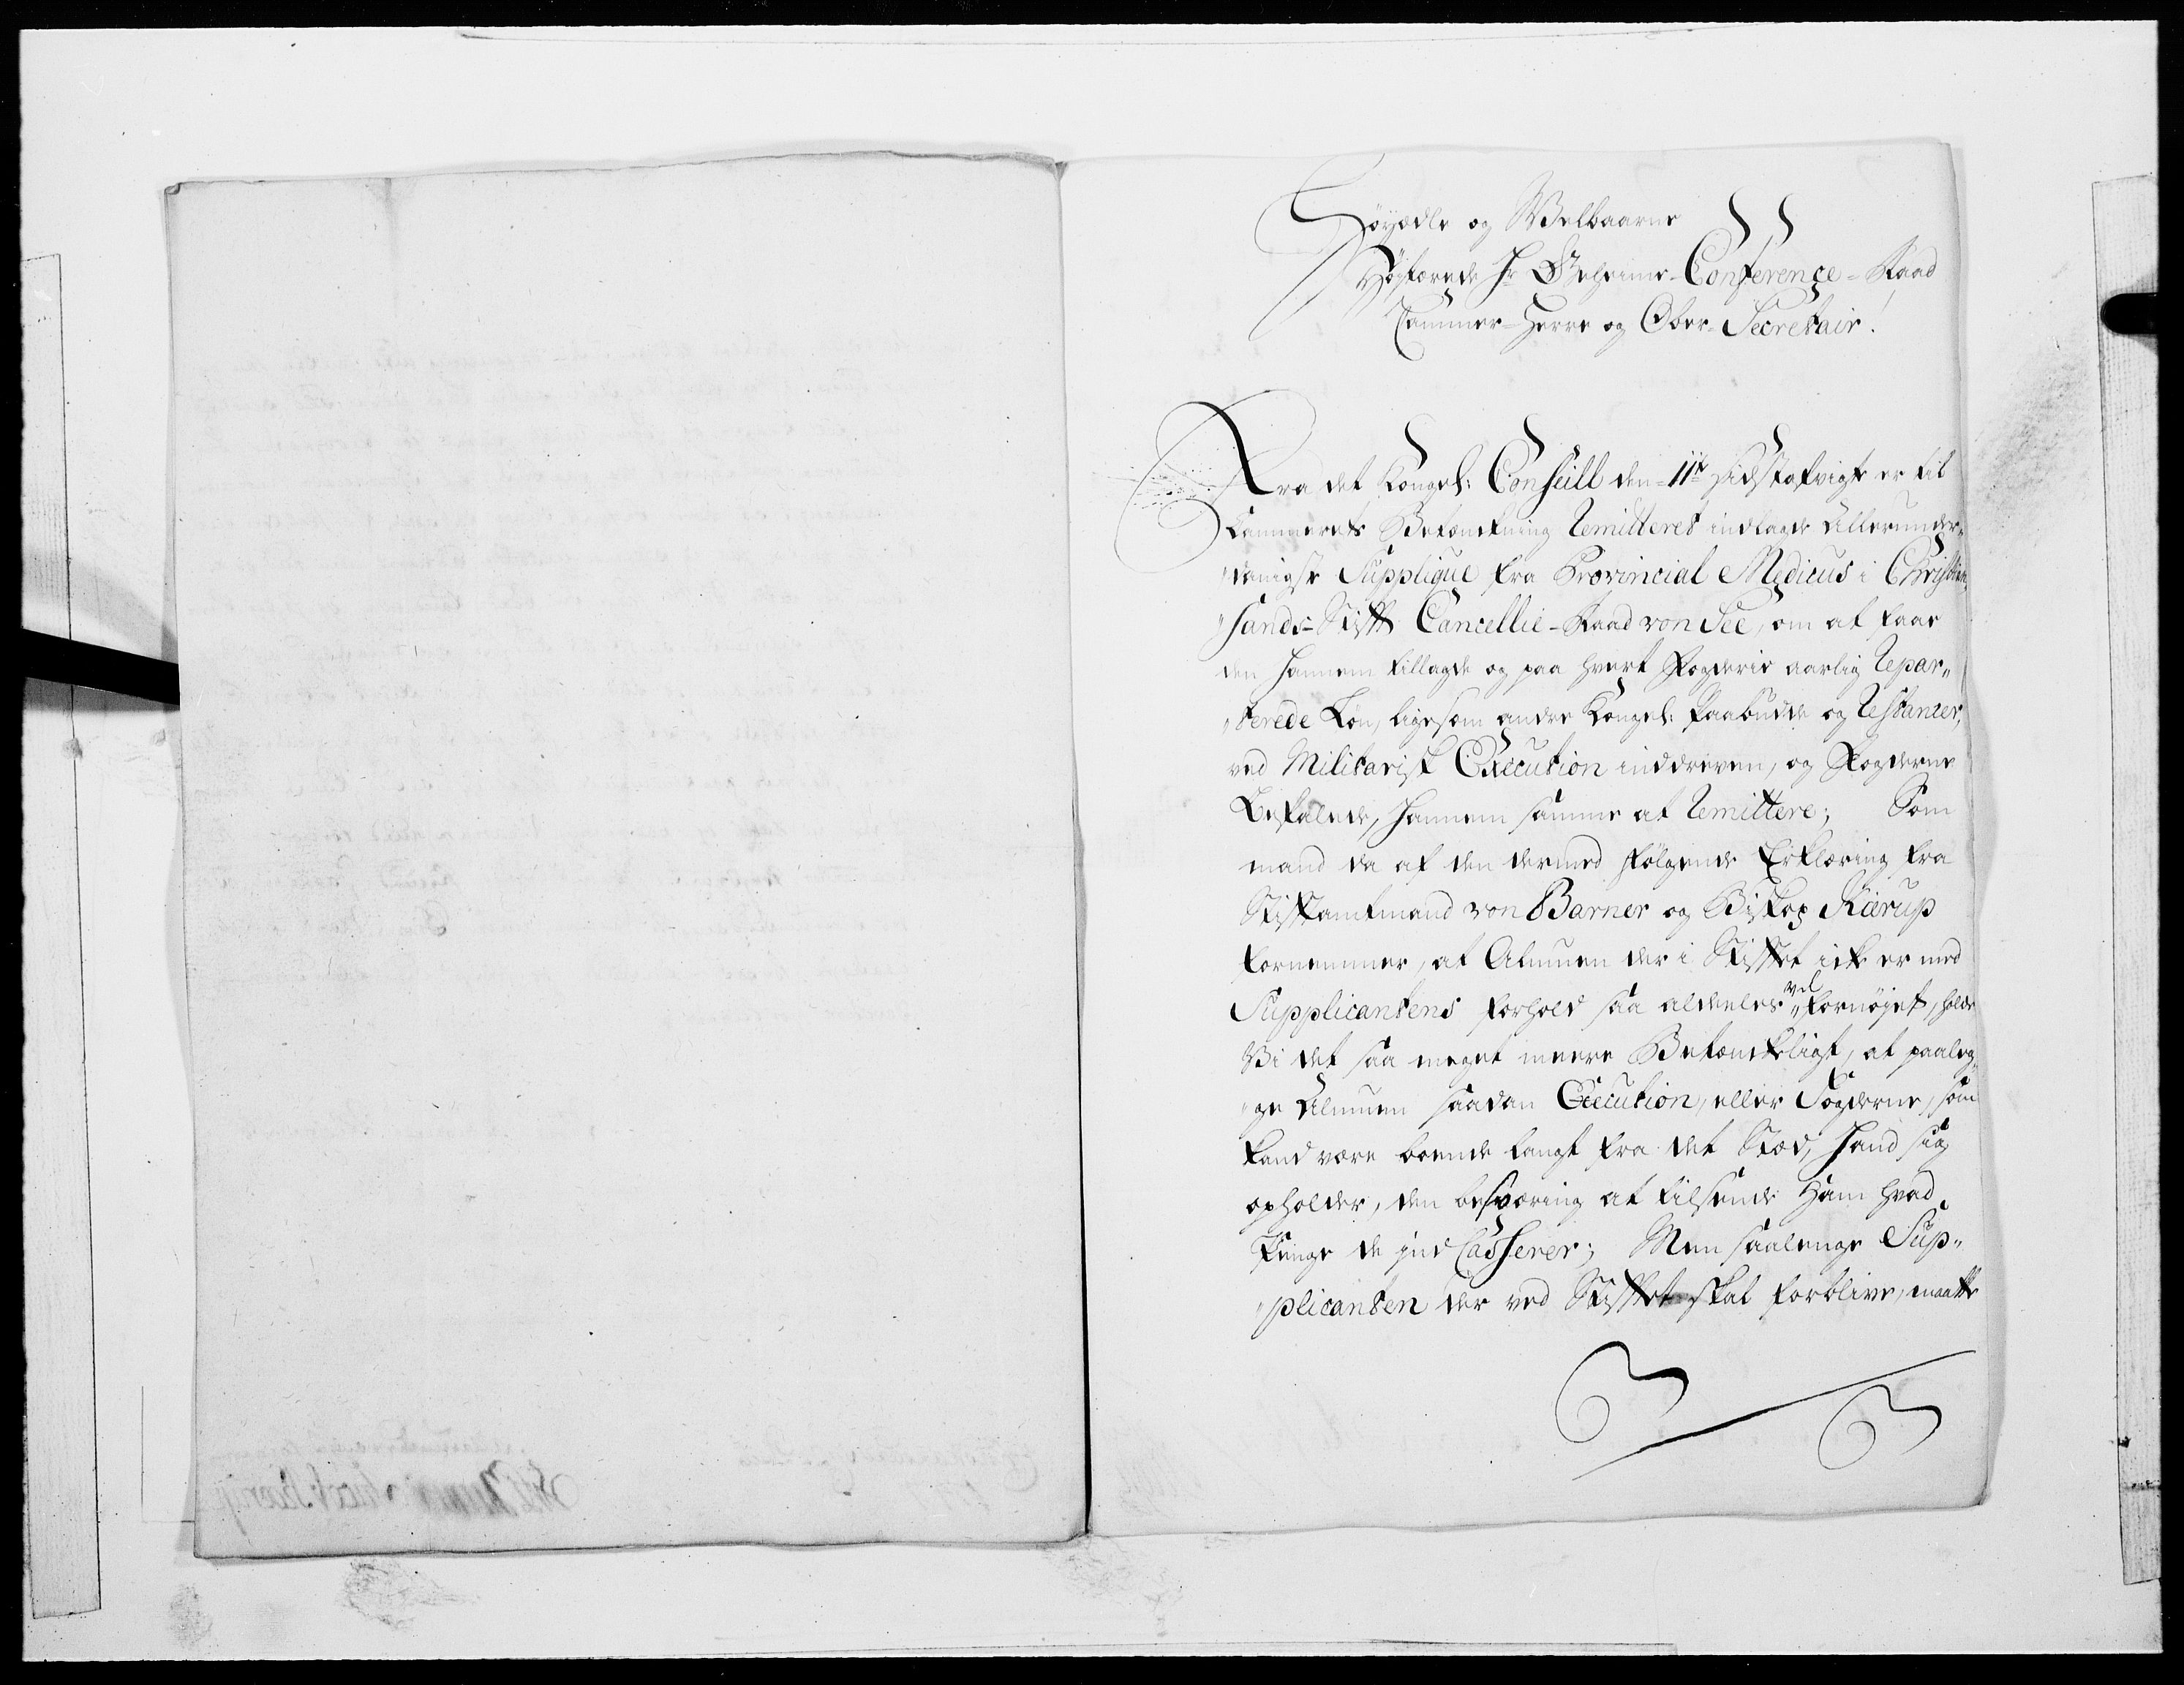 Høyædle og Welbaarne
Høystærede Hr Geheime-Conference-Raad
Cammer-Herre og Ober-Secretair!
Fra det Kongel: Conseill den 11te sidstafvigte er til
Cammerets Betænkning remitteret indlagde Allerunder-
„danigste Supplique fra Provincial Medicus i Christian
„sands-Stift Cancellie-Raad von See, om at faae
den hannem tillagde og paa hvert Fogderie aarlig repar„
„terede Løn, ligesom andre Kongel: Paabudde og restanzer,
ved Militarisk Execution inddreven, og Fogderne
Befalede, hannem samme at remittere; Som
mand da af den dermed følgende Erklæring fra
Stiftamtmand von Barner og Biskop Kærup
fornemmer, at Almuen der i Stiftet icke er med
Supplicantens forhold saa aldeeles vel „fornøjet, holde
Vi det saa meget meere Betænkeligt, at paaleg„
„ge Almuen saadan Execution, eller Fogderne, som
kand være boende langt fra det Stæd, hand sig
opholder, den besværing at tilsende ham hvad
Penge de ind Casserer; Men saalenge Sup„
„plicanten der ved Stiftet skal forblive, maatte